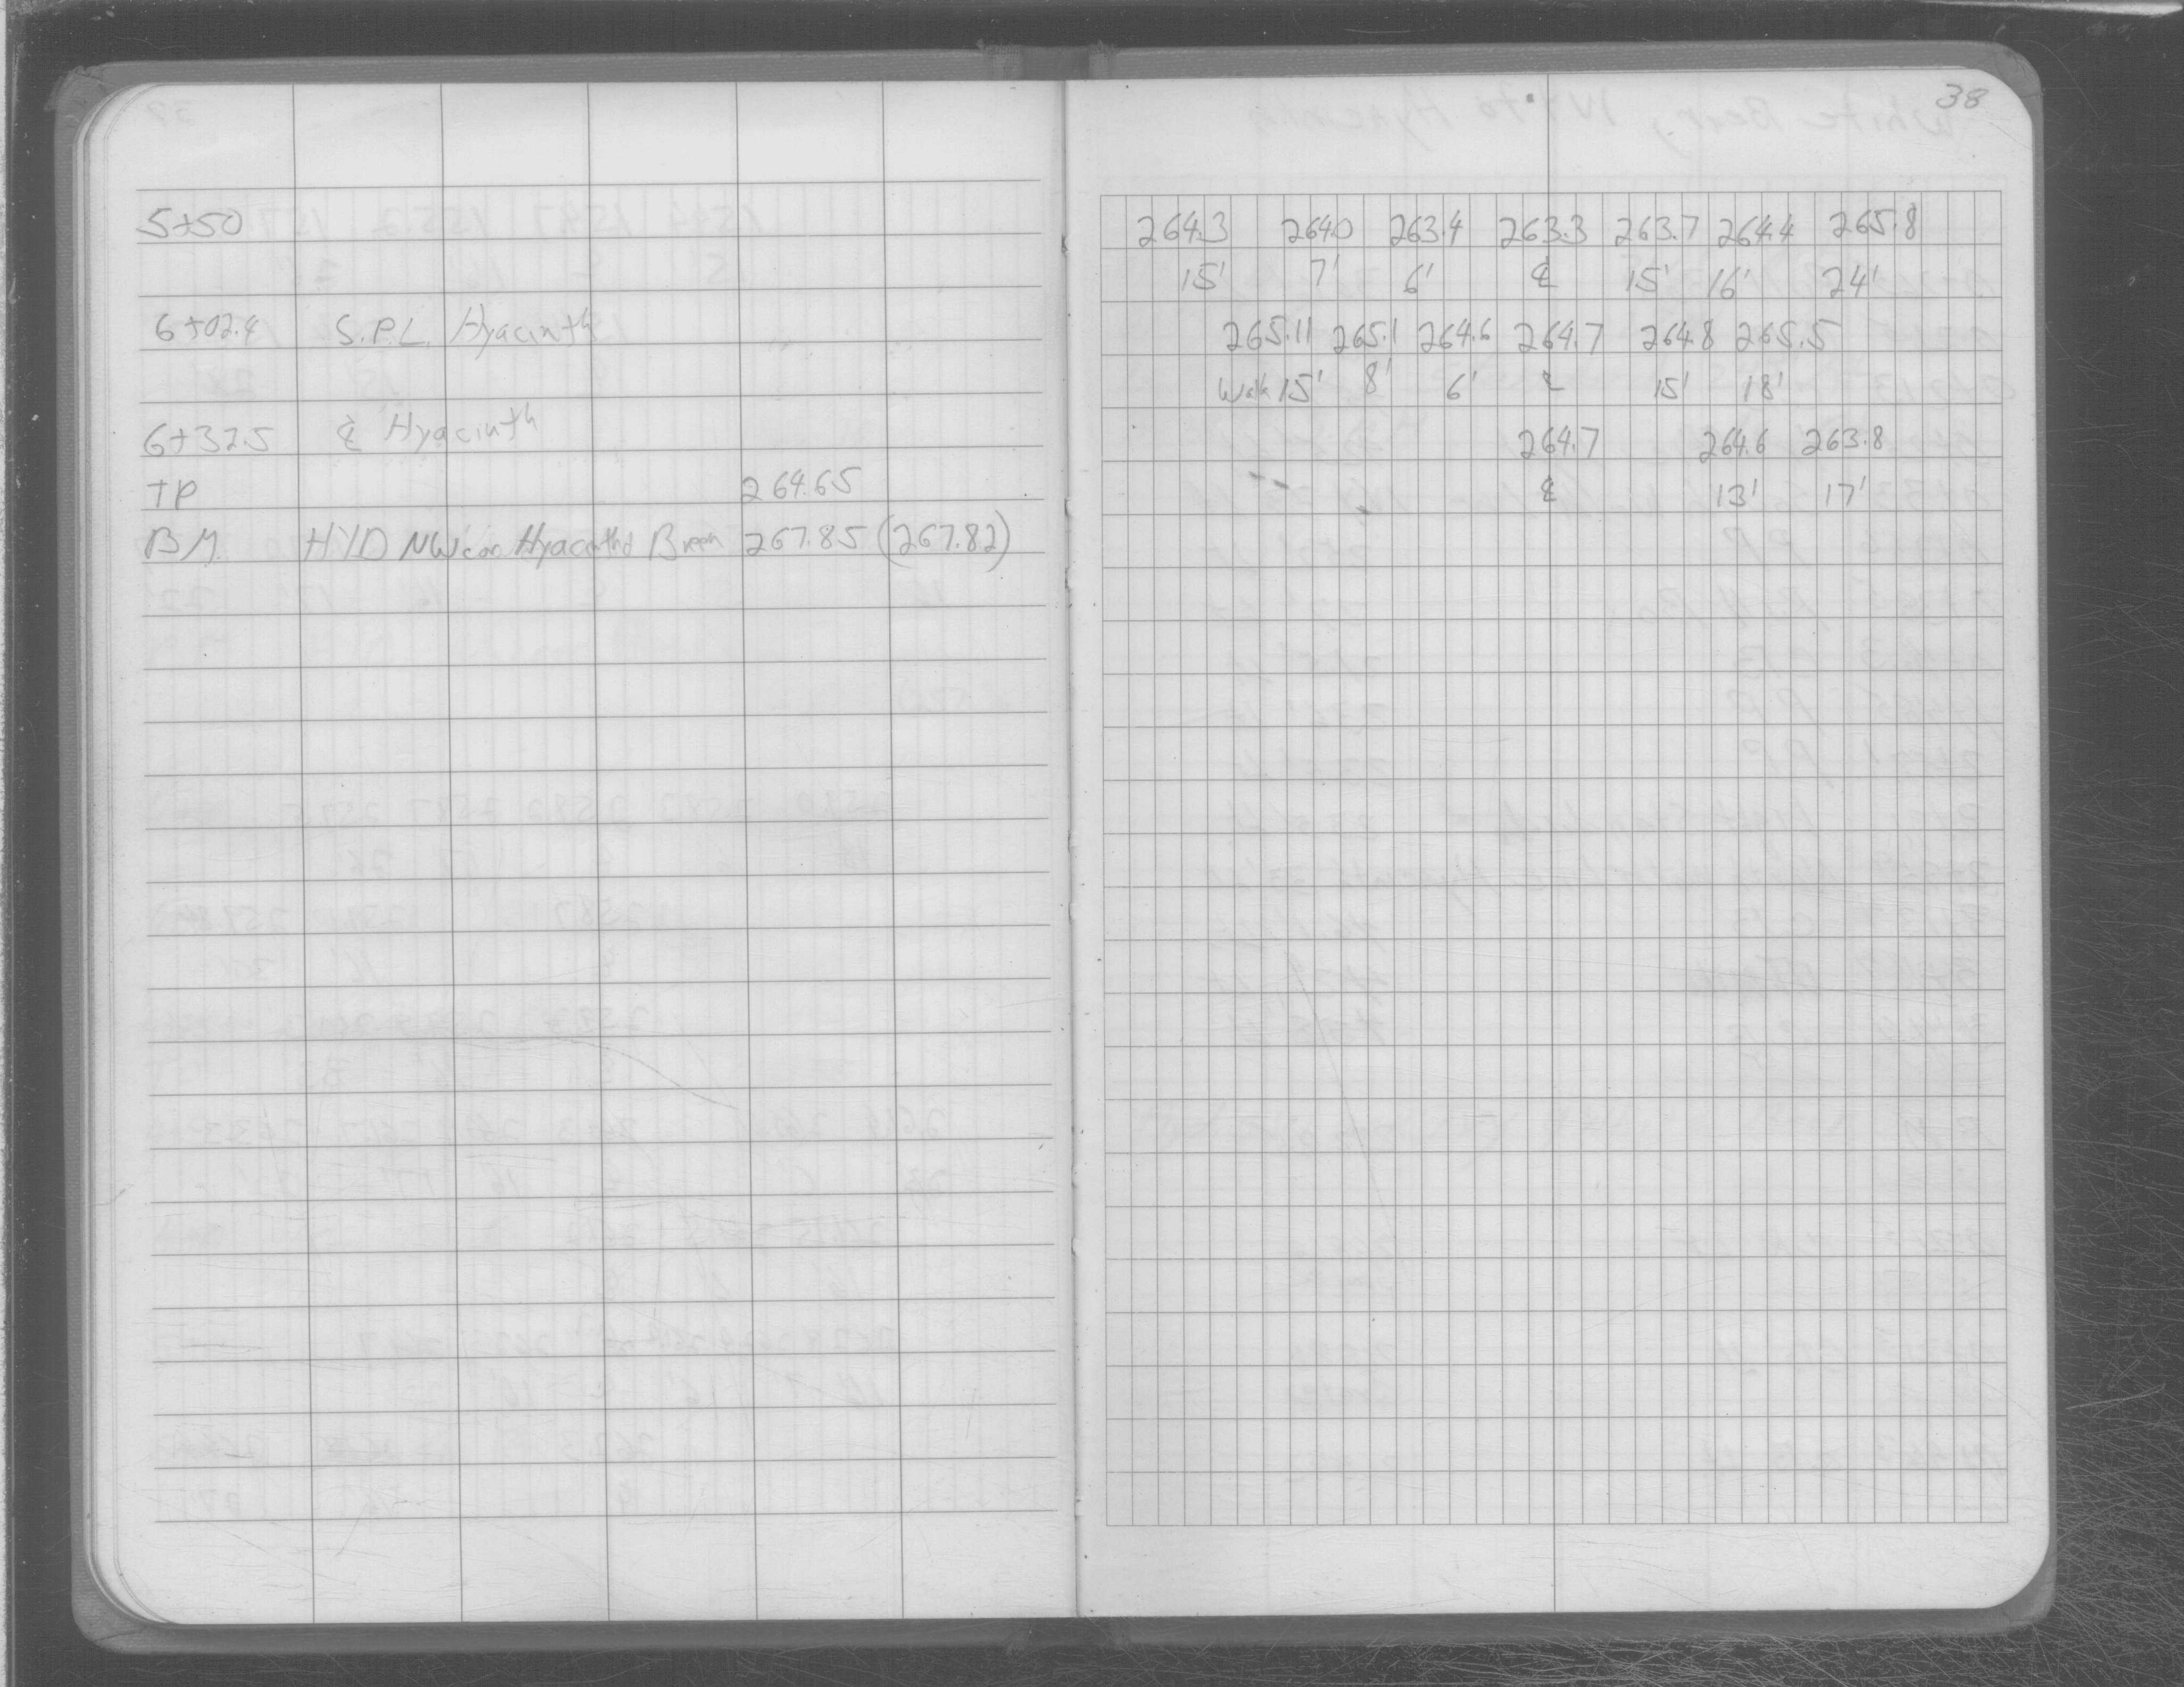 38
5+50 264.3 264.0 263.4 263.3 263.7 264.4 265.8
15' 7' 6' ℄ 15' 16' 24'
6+02.4 S.P.L. Hyacinth 265.11 265.1 264.6 264.7 264.8 265.5
Walk 15' 8' 6' ℄ 15' 18'
6+32.5 ℄ Hyacinth 264.7 264.6 263.8
TP 264.65 ℄ 13' 17'
B.M. HYD NW cor Hyacinth & 267.85 (267.82)